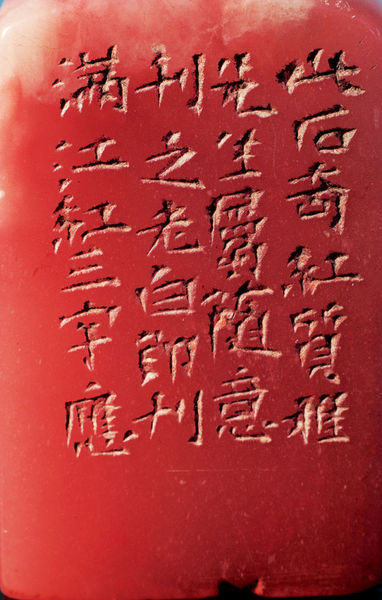 此石奇紅質雅
先生屬隨意
刊之老白即刊
满江紅三字應